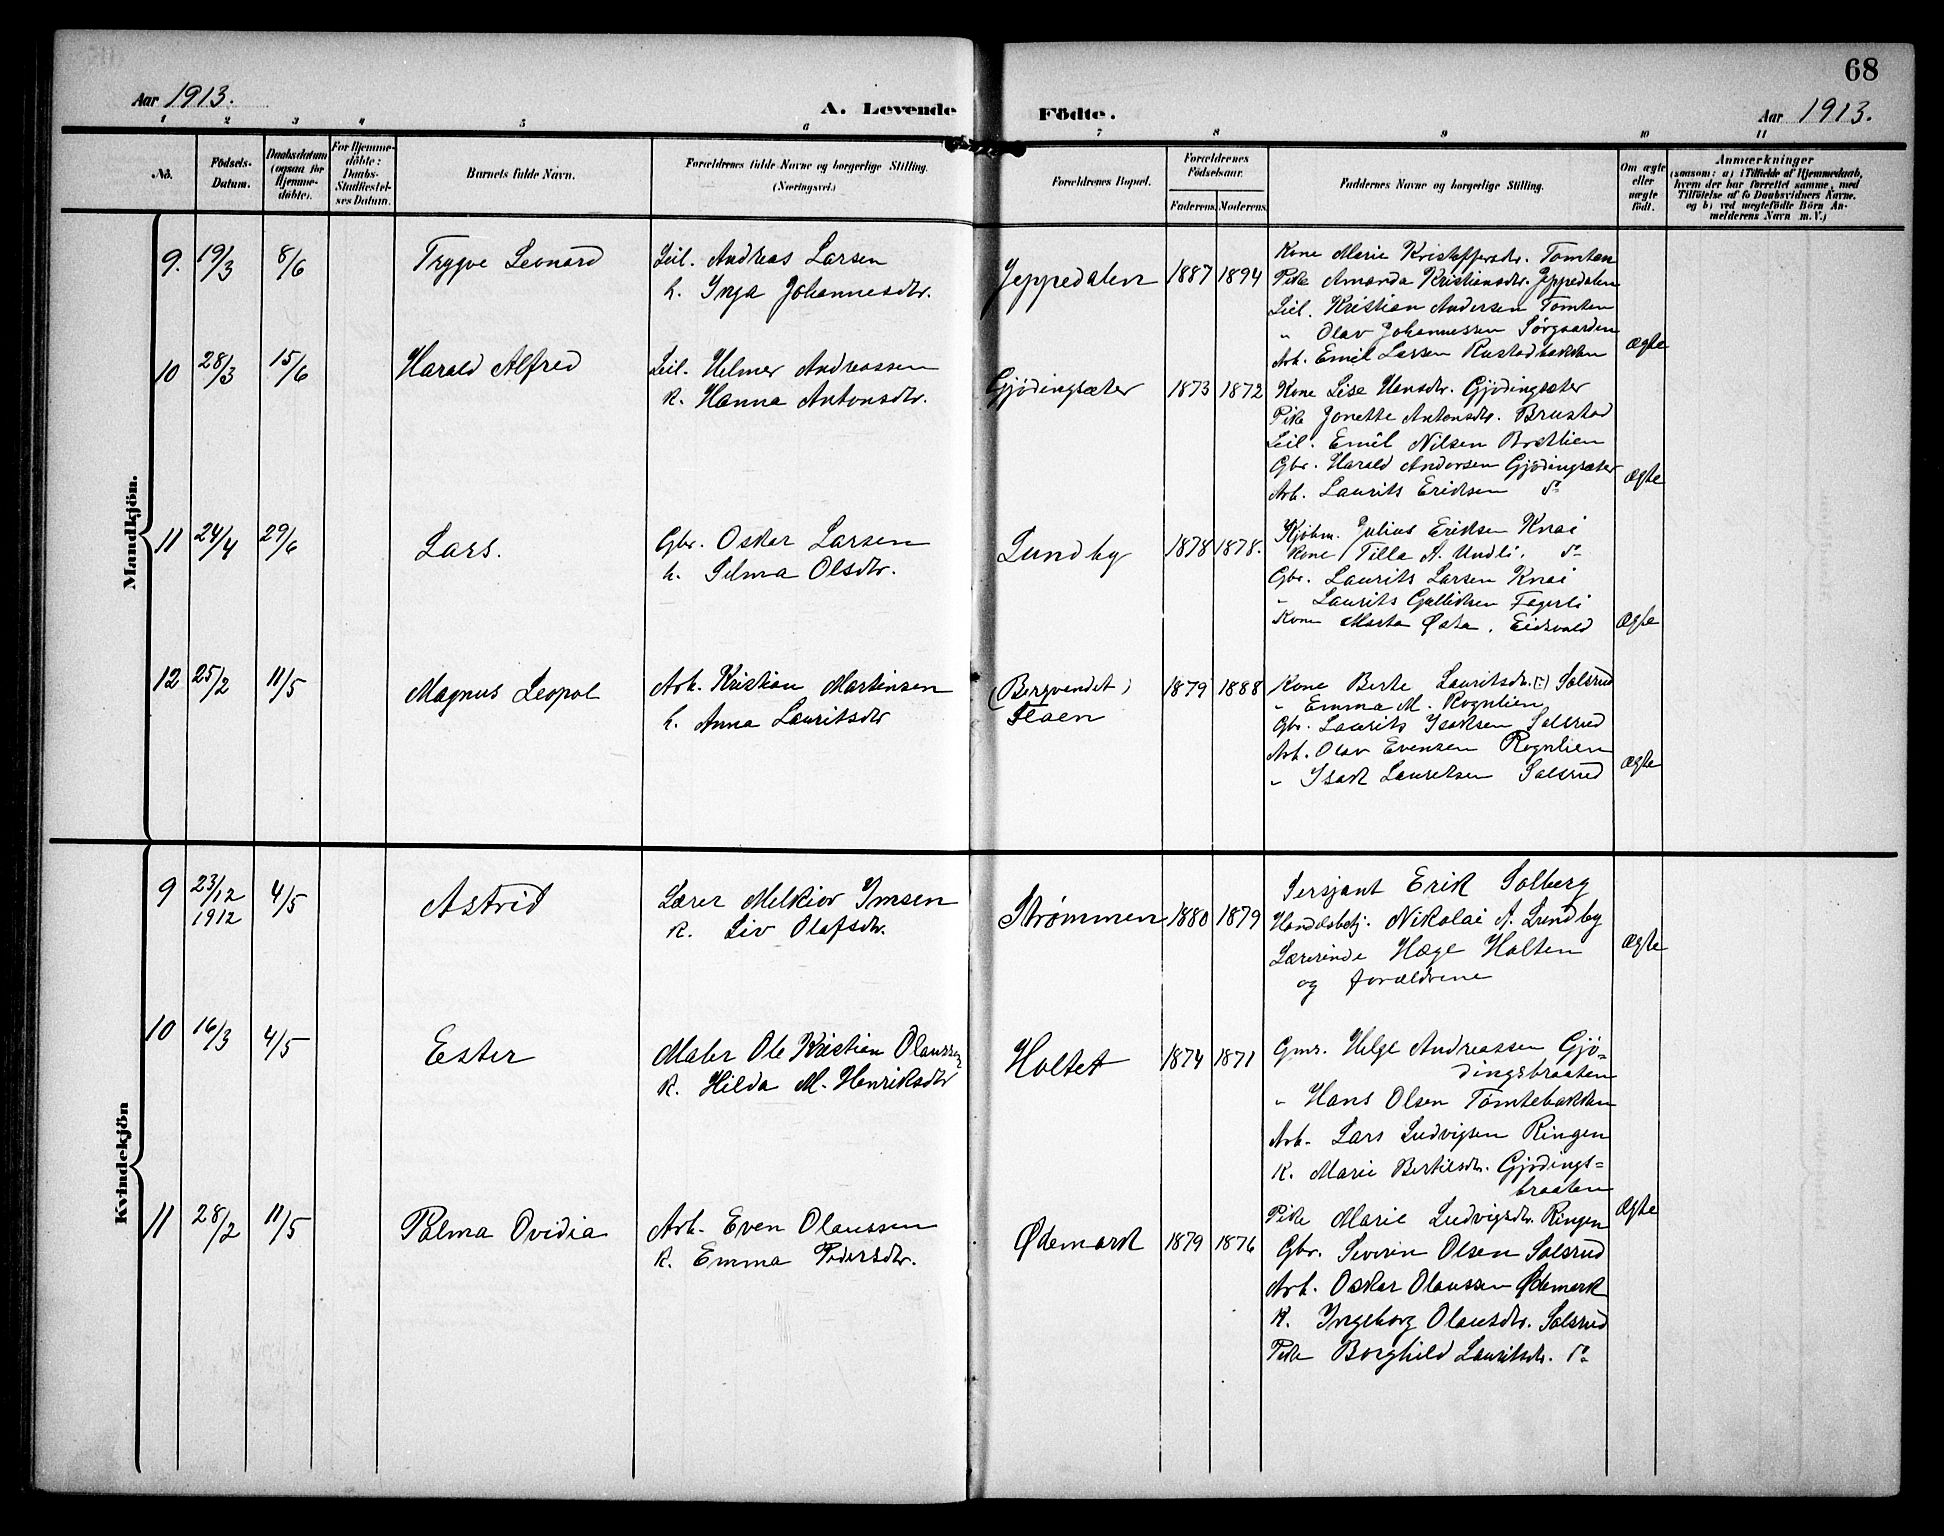 68
Aar 1913.
A. Levende Födte.
Aar 1913.
1 2 3 4 5 6 7 8 9 10 11
No.
Födsels-Datum.
Daabsdatum (ogsaa for Hjemme-döbte).
For Hjemme-döbte: Daabs-Stadfæstel-ses Datum.
Barnets fulde Navn.
Forældrenes fulde Navne og borgerlige Stilling.
(Næringsvei.)
Forældrenes Bopæl.
Forældrenes Födselsaar.
Faderens. Moderens.
Faddernes Navne og borgerlig Stilling.
Om ægte eller uægte födt.
Anmærkninger
(saasom: a) i Tilfælde af Hjemmedaab,
hvem der har forrettet samme, med
Tilföielse af to Daabsvidners Navne.
og b) ved uægtefödte Börn An-
melderens Navn m. V.)
Mandkjön.
9. 19/3 8/6 Trygve Leonard Leil. Andreas Larsen
h. Inga Johannesdtr.
Jeppedalen 1887 1894
Kone Marie Kristoffersdtr. Tomten
Pike Amanda Kristiansdtr. Jeppedalen
Leil. Kristian Andersen Tomten
" Olav Johannessen Sørgaarden
Arb. Emil Larsen Rustadbakken Ægte
10 28/3 15/6 Harald Alfred Leil. Helmer Andreassen
k. Hanna Antonsdtr.
Gjødingsæter 1873 1872
Kone Lise Hansdtr. Gjødingsæter
Pike Jonette Antonsdtr. Brustad
Leil. Emil Nilsen Brætlien
Gbr. Harald Andersen Gjødingsæter
Arb. Laurits Eriksen do Ægte
11 24/4 29/6 Lars. Gbr. Oskar Larsen
h. Selma Olsdtr.
Lundby 1878 1878.
Kjøbm. Julius Eriksen Knai
Kone Tilla A. Undli. do
Gbr. Laurits Larsen Knai
" Laurits Gulliksen Fagerli
Kone Marta Østa, Eidsvold Ægte
12 25/2 11/5 Magnus Leopol Arb. Kristian Martinsen
h. Anna Lauritsdtr
(Bergvendet)
Staen 1879 1888
Kone Berte Lauritsdtr. Solsrud
" Emma M. Rognlien
Gbr. Laurits Isaksen Solsrud
Arb. Olav Evensen Rognlien
" Isak Lauritsen Solsrud Ægte
Kvindekjön
9 23/12 1912 4/5 Astrid Lærer Melkior Imsen
k. Liv Olafsdtr.
Strømmen 1880 1879
Sersjant Erik Solberg
Handelsbetj. Nikolai A. Lundby
Lærerinde Hæge Holten
og forældrene Ægte
10 16/3 4/5 Ester Maler Ole Kristian Olaussen
k. Hilda M. Henriksdtr
Holtet 1874 1871
Gmr. Helge Andreassen Gjø-
dingsbraaten
" Hans Olsen Tømtebakken
Arb. Lars Ludvigsen Ringen
K. Marie Bertilsdtr. Gjødings-
braaten
Pike Marie Ludvigsdtr. Ringen Ægte
11 28/2 11/5 Palma Ovidia Arb. Even Olaussen
k. Emma Pedersdtr.
Ødemark 1879 1876
Gbr. Severin Olsen Solsrud
Arb. Oskar Olaussen Ødemark
K. Ingeborg Olausdtr. Solsrud
Pike Borghild Lauritsdtr. do